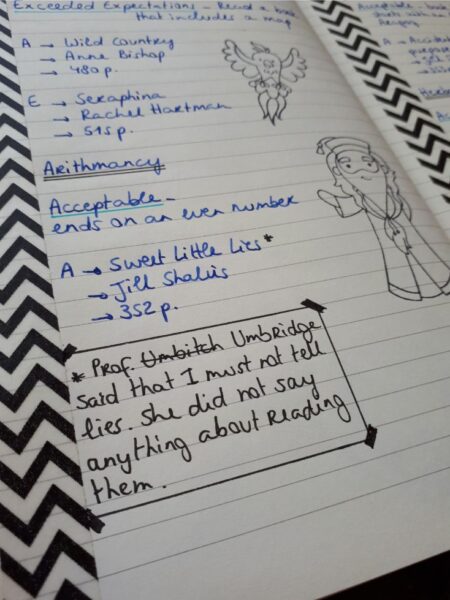 Exceeded Expectations - Read a book
that includes a map
A → Wild Country
→ Anne Bishop
→ 480 p.
E → Seraphina
→ Rachel Hartman
→ 515 p.
Arithmancy
Acceptable -
ends on an even number
A → Sweet Little Lies *
→ Jill Shalvis
→ 352 p.
* Prof. Umbitch Umbridge
said that I must not tell
lies. She did not say
anything about Reading
them.
Acceptable - book